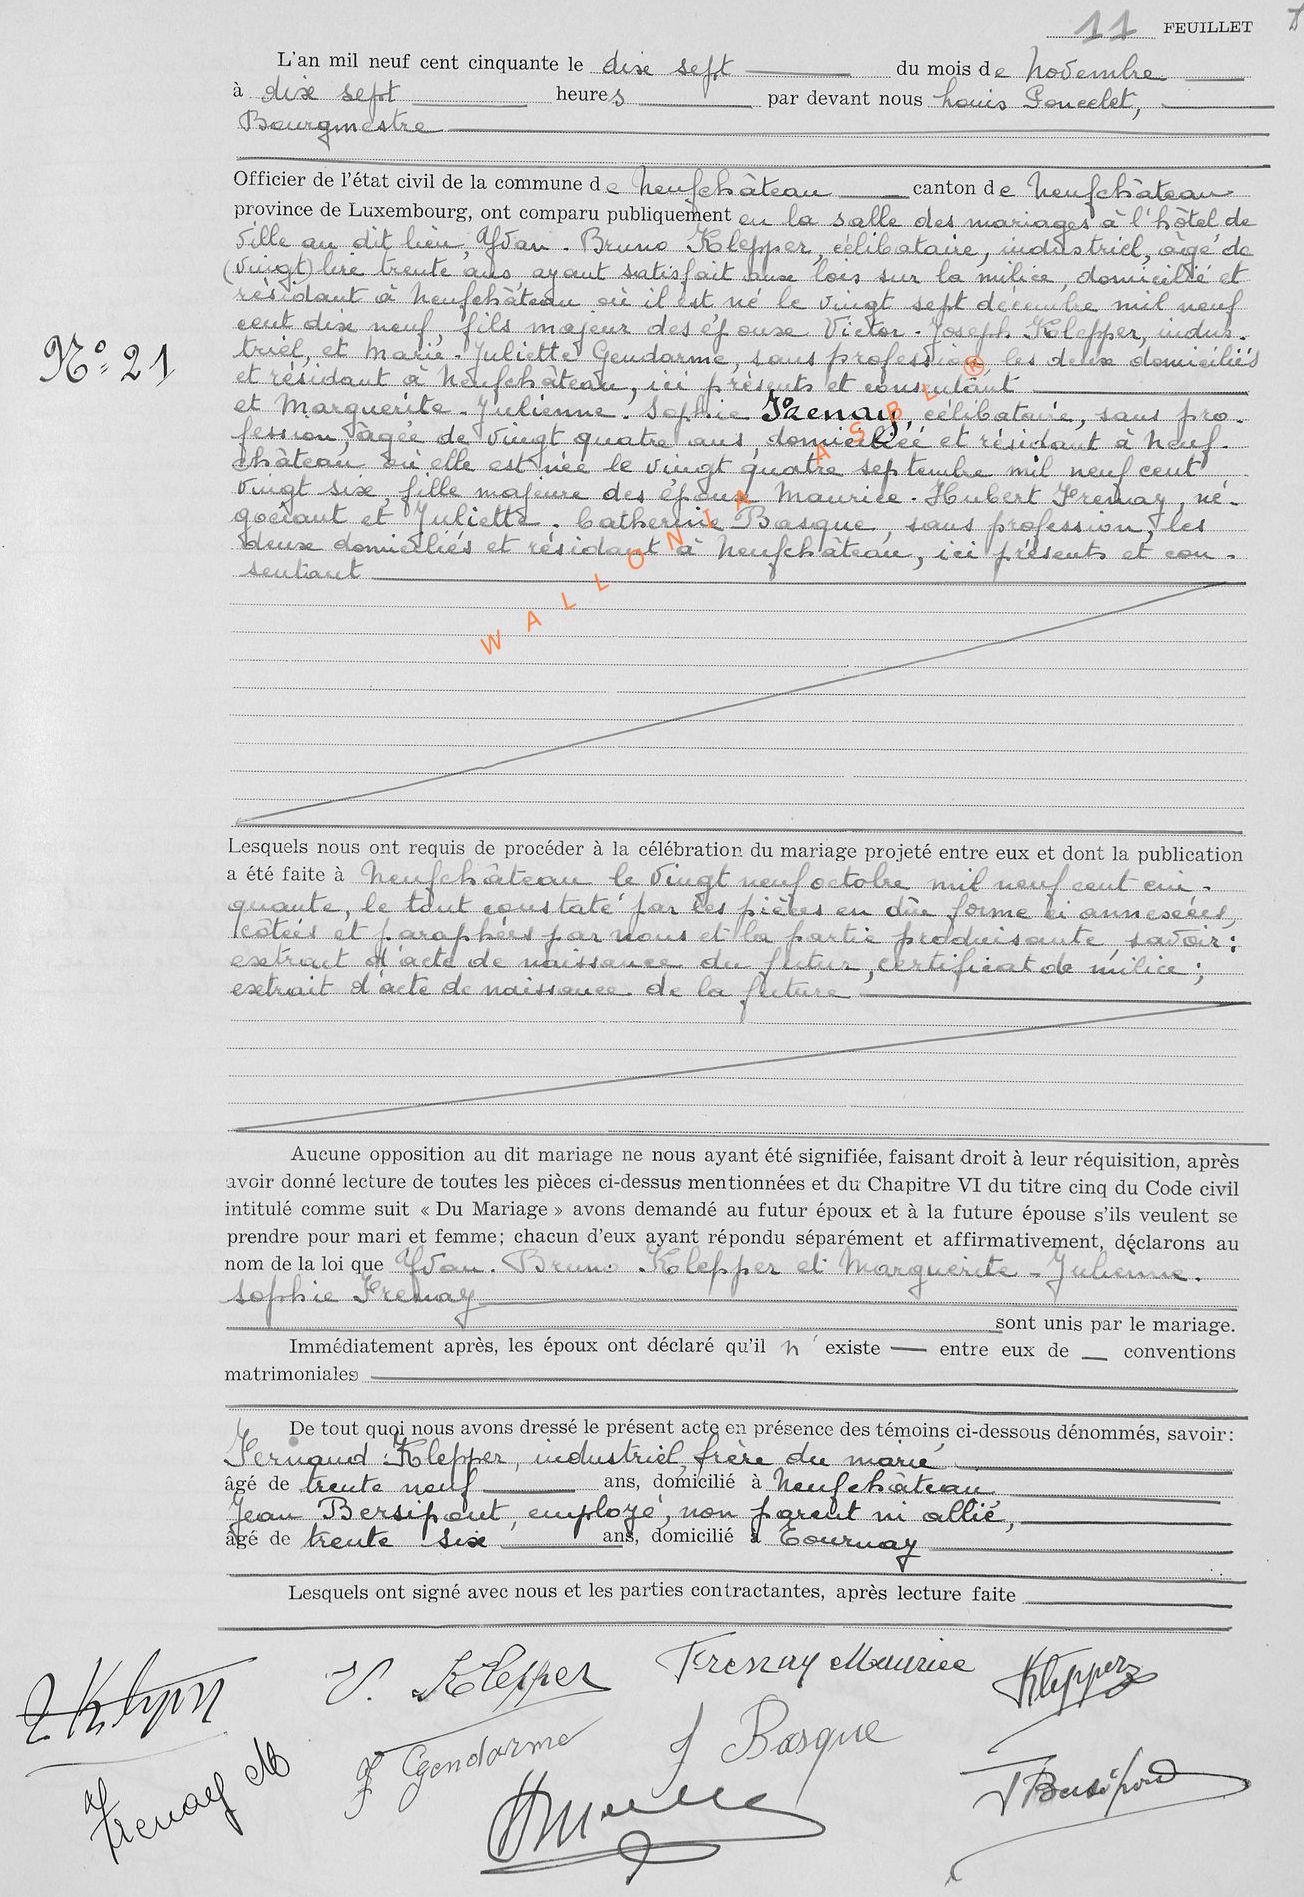 11 FEUILLET
L'an mil neuf cent cinquante le dix sept du mois de Novembre
à dix sept heures par devant nous Louis Poncelet,
Bourgmestre
Officier de l'état civil de la commune de Neufchâteau canton de Neufchâteau
province de Luxembourg, ont comparu publiquement en la salle des mariages à l'hôtel de
ville au dit lieu, Yvan-Bruno Klepper, célibataire, industriel, âgé de
(vingt) lire trente ans ayant satisfait aux lois sur la milice, domicilié et
résidant à Neufchâteau où il est né le vingt sept décembre mil neuf
cent dix neuf, fils majeur des époux Victor-Joseph Klepper, indus-
triel, et Marie-Juliette Gendarme, sans profession, les deux domiciliés
N° 21
et résidant à Neufchâteau, ici présents et consentant
et Marguerite-Julienne-Sophie Frenay, célibataire, sans pro-
fession, âgée de vingt quatre ans, domiciliée et résidant à Neuf-
château où elle est née le vingt quatre septembre mil neuf cent
vingt six, fille majeure des époux Maurice-Hubert Frenay, né-
gociant et Juliette-Catherine Basque, sans profession, les
deux domiciliés et résidant à Neufchâteau, ici présents et con-
sentant
WALLONIA ASBL ®
Lesquels nous ont requis de procéder à la célébration du mariage projeté entre eux et dont la publication
a été faite à Neufchâteau le vingt neuf octobre mil neuf cent cin-
quante, le tout constaté par les pièces en due forme ci annexées,
côtées et paraphées par nous et la partie produisante, savoir:
extrait d'acte de naissance du futur, certificat de milice;
extrait d'acte de naissance de la future
Aucune opposition au dit mariage ne nous ayant été signifiée, faisant droit à leur réquisition, après
avoir donné lecture de toutes les pièces ci-dessus mentionnées et du Chapitre VI du titre cinq du Code civil
intitulé comme suit « Du Mariage » avons demandé au futur époux et à la future épouse s'ils veulent se
prendre pour mari et femme; chacun d'eux ayant répondu séparément et affirmativement, déclarons au
nom de la loi que Yvan-Bruno-Klepper et Marguerite-Julienne-
Sophie Frenay
sont unis par le mariage.
Immédiatement après, les époux ont déclaré qu'il n'existe entre eux de conventions
matrimoniales
De tout quoi nous avons dressé le présent acte en présence des témoins ci-dessous dénommés, savoir:
Fernand Klepper, industriel, frère du marié
âgé de trente neuf ans, domicilié à Neufchâteau,
Jean Bersipont, employé, non parent ni allié,
âgé de trente six ans, domicilié à Tournay
Lesquels ont signé avec nous et les parties contractantes, après lecture faite
V. Klepper Frenay Maurice Klepper
Frenay M J Gendarme J Basque J Bersipont